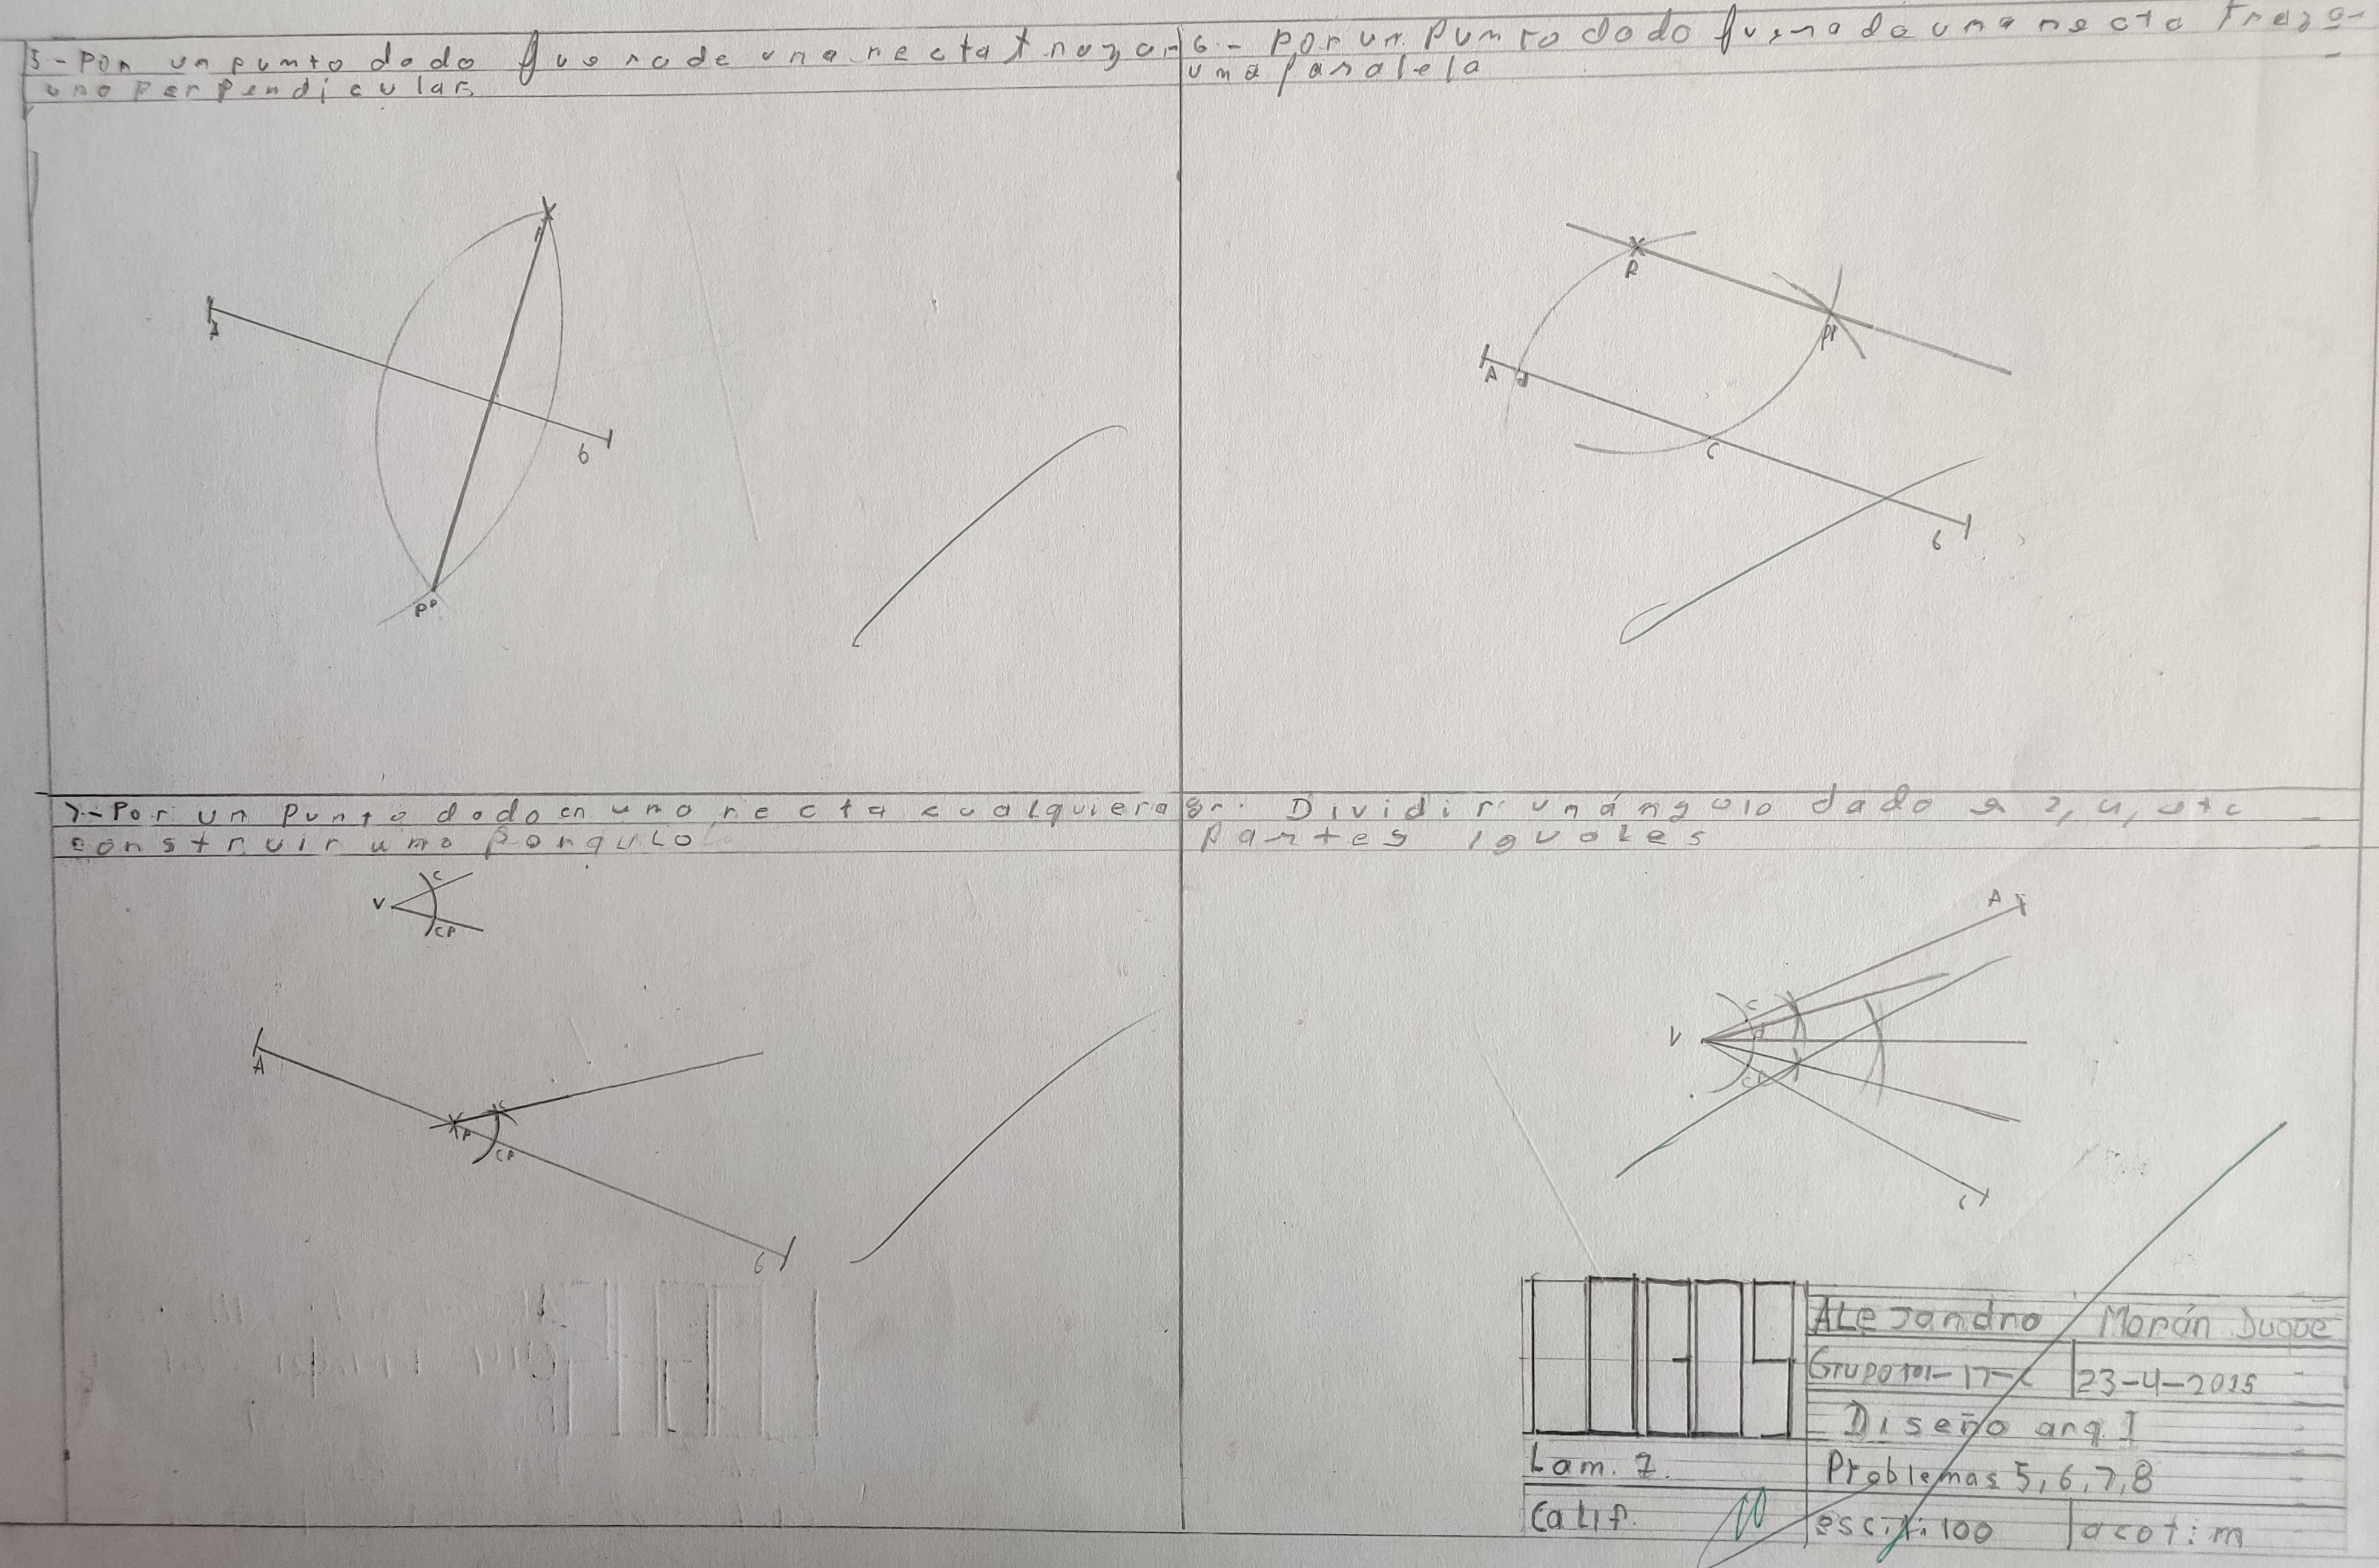 5-Por un punto dado fuera de una recta trazar
una perpendicular
6.- Por un punto dado fuera de una recta traza-
una paralela
P
A
6
PP
P
PP
A d
C
6
7.-Por un punto dado en una recta cualquiera
construir uno
8.- Dividir un ángulo dado a 2, 4, etc
partes iguales
V
C
CP
A
P
C
CP
6
A
V
C
d
CP
ALeJandro Morán Duque
Grupo 23-4-2015
Diseño arq. I
Lam. Problemas 5,6,7,8
Calif. 10 esc: 1:100 acot: m